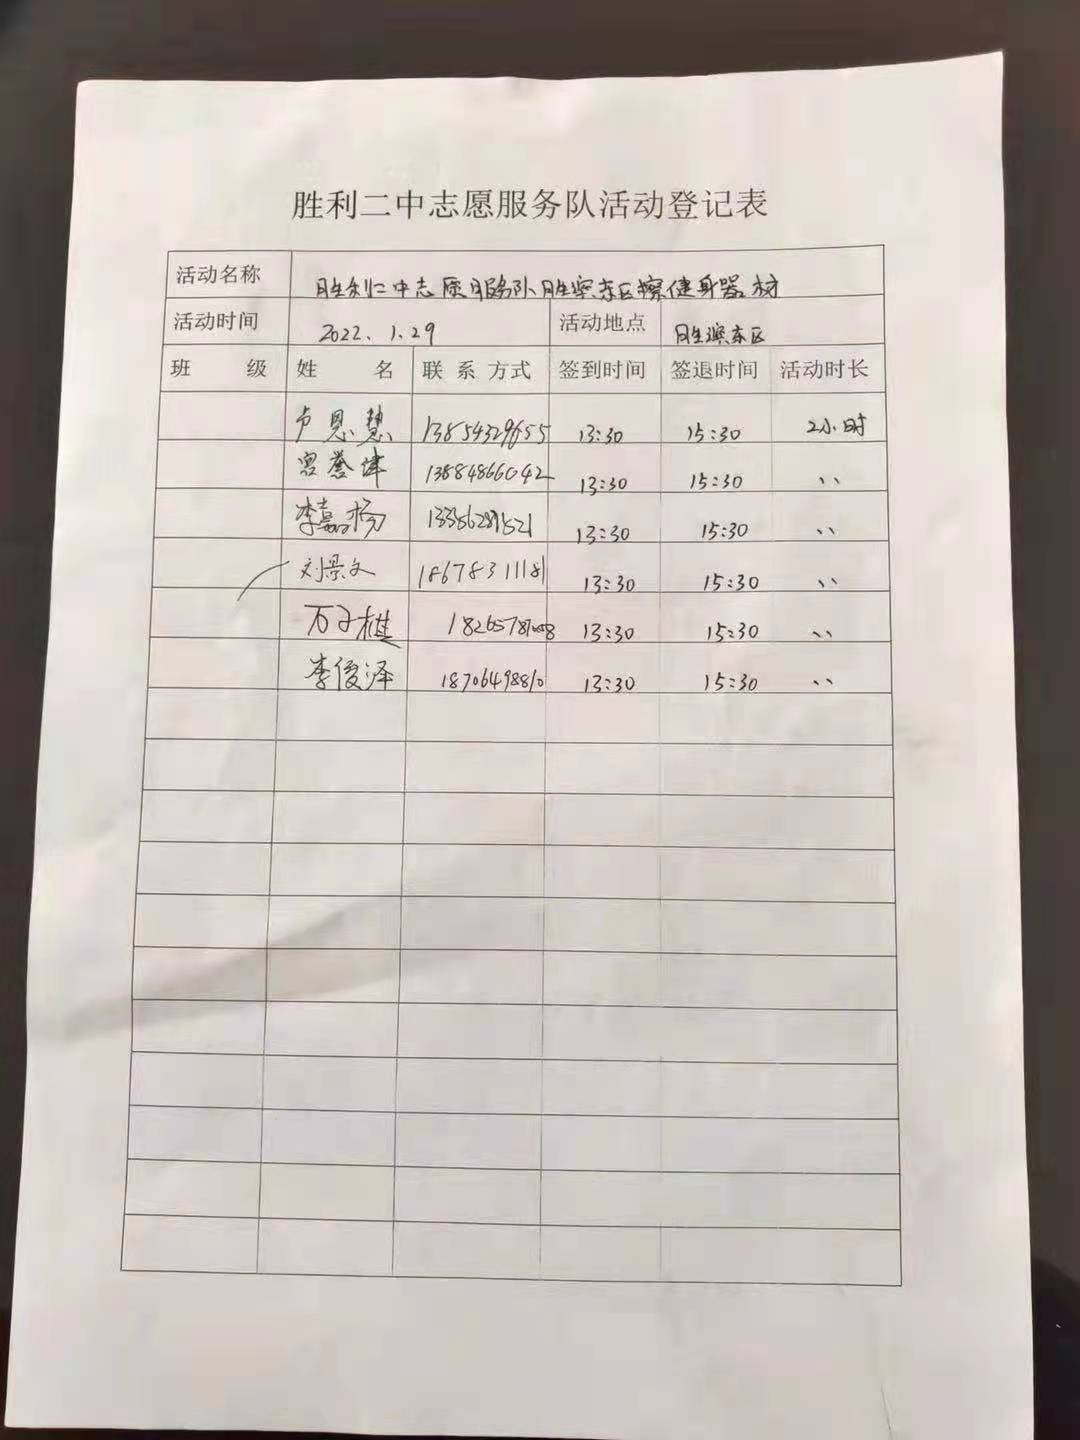 胜利二中志愿服务队活动登记表
活动名称 胜利二中志愿服务队胜滨东区擦健身器材
活动时间 2022.1.29 活动地点 胜滨东区
班 级 姓 名 联 系 方式 签到时间 签退时间 活动时长
卢恩慧 13854329655 13:30 15:30 2小时
宫誉 13884866042 13:30 15:30 、、
李嘉杨 13356289521 13:30 15:30 、、
刘景文 18678311181 13:30 15:30 、、
万子 13:30 15:30 、、
李俊泽 18706498810 13:30 15:30 、、